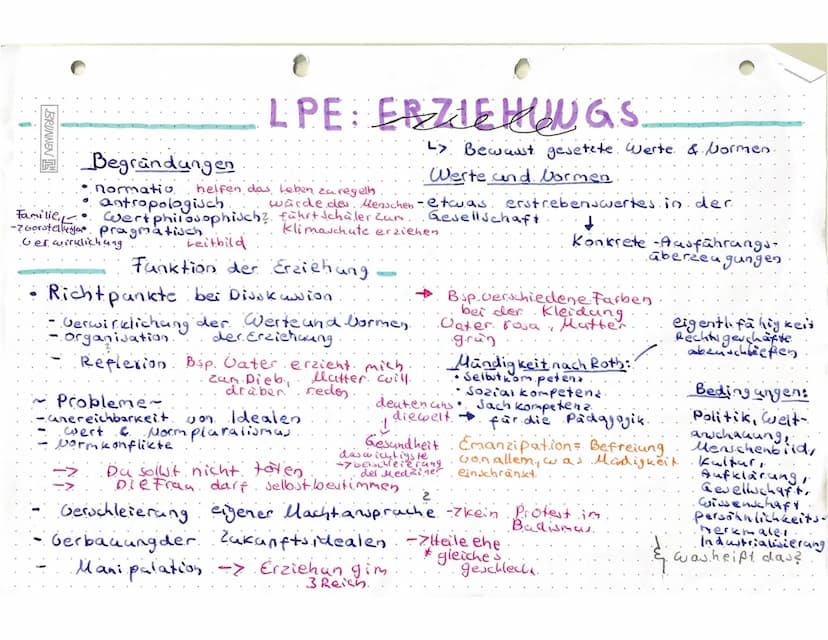 LPE: ERZIEHUNGS
ziele
BRUNNEN
↳ Bewusst gesetzte Werte & Normen
Begründungen
• normativ helfen das Leben zu regeln
• antropologisch würde des Menschen
• Wertphilosophisch? führt Schüler zum Leitbild
• pragmatisch Klimaschutz erziehen
Familie
→ Vorstellungen
Verwirklichung
Werte und Normen
- etwas erstrebenswertes in der
Gesellschaft
↓
Konkrete - Ausführungs-
überzeugungen
Funktion der Erziehung
• Richtpunkte bei Disskussion
- Verwirklichung der Werte und Normen
- Organisation der Erziehung
- Reflexion Bsp. Vater erzieht mich
zum Dieb, Mutter will
drüber reden
→ Bsp. verschiedene Farben
bei der Kleidung
Vater rosa, Mutter
grün
Mündigkeit nach Roth:
• Selbstkompetenz
• Sozialkompetenz
• Sachkompetenz
→ für die Pädagogik
eigentl. fähigkeit
Rechtsgeschäfte
abzuschließen
~ Probleme ~
- unereichbarkeit von Idealen
- Wert & Normpluralismus
- Normkonflikte
→ Du sollst nicht töten
→ Die Frau darf selbst bestimmen
deuten uns
die welt
↓
Gesundheit
das wichtigste
→ verschleierung
der Mediziner
Emanzipation = Befreiung
von allem, was Mündigkeit
einschränkt
- Verschleierung eigener Machtansprüche ? → kein Protest im
Budismus
- Verbauung der Zukunftsidealen → Heile ehe
* gleiches
geschlech
- Manipulation → Erziehung im
3 Reich
Bedingungen:
Politik, Welt-
anschauung,
Menschenbild,
Kultur,
Aufklärung,
Gesellschaft,
Wissenschaft
Persönlichkeits-
merkmale,
Industrialisierung
was heißt das?